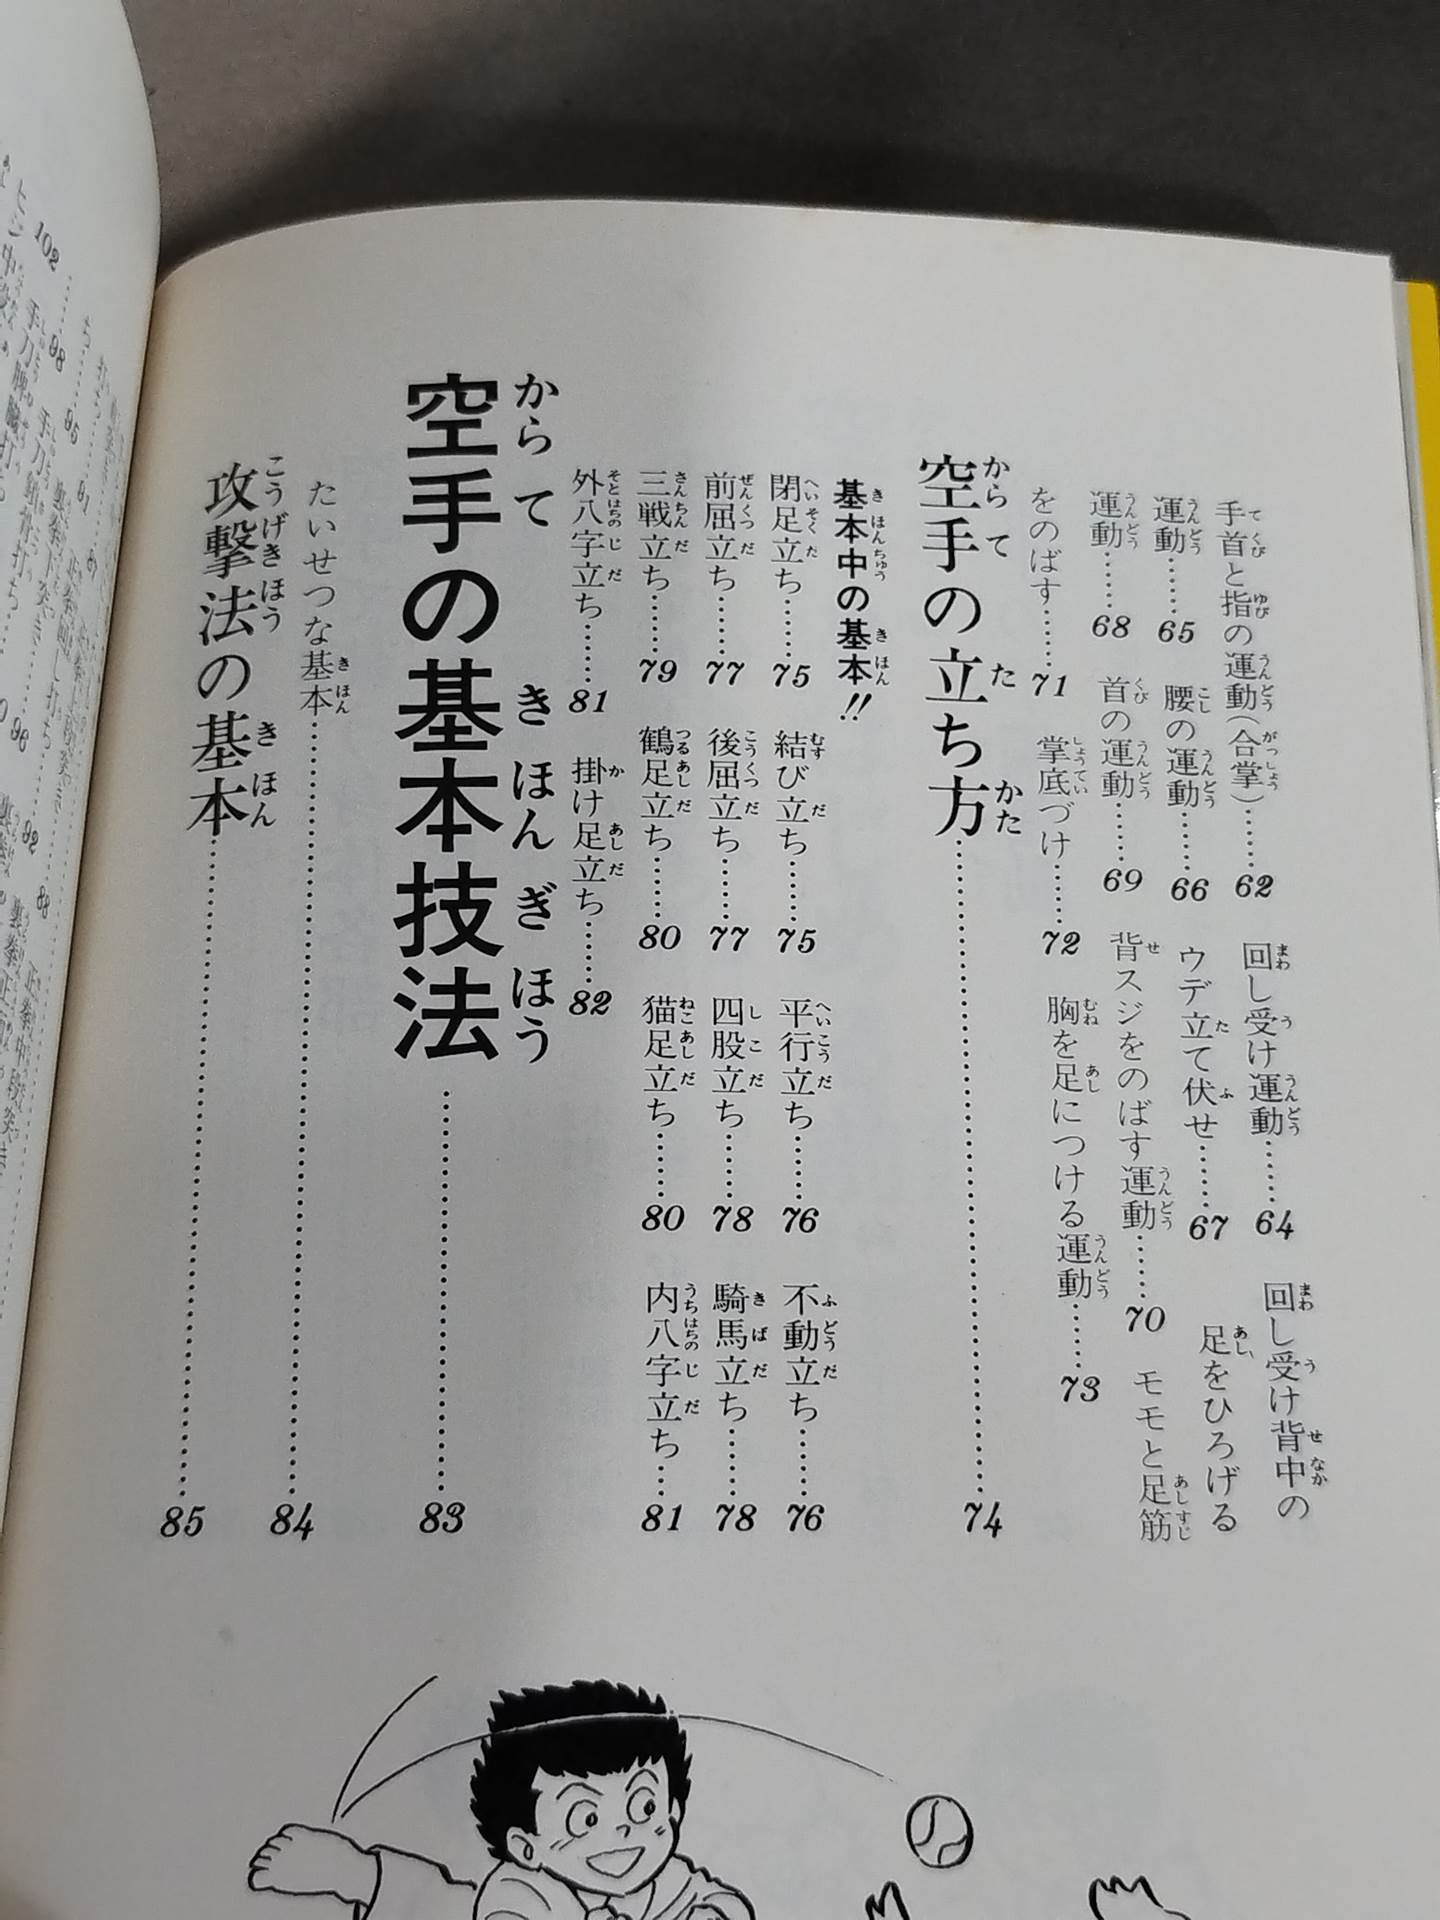 手首と指の運動(合掌)……62 回し受け運動……64 回し受け背中の
運動……65 腰の運動……66 ウデ立て伏せ……67 足をひろげる
運動……68 首の運動……69 背スジをのばす運動……70 モモと足筋
をのばす……71 掌底づけ……72 胸を足につける運動……73
空手の立ち方……74
基本中の基本!!
閉足立ち……75 結び立ち……75 平行立ち……76 不動立ち……76
前屈立ち……77 後屈立ち……77 四股立ち……78 騎馬立ち……78
三戦立ち……79 鶴足立ち……80 猫足立ち……80 内八字立ち……81
外八字立ち……81 掛け足立ち……82
空手の基本技法……83
たいせつな基本……84
攻撃法の基本……85